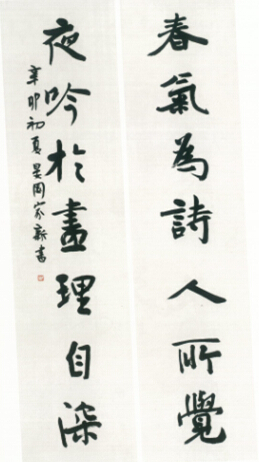 春氣為詩人所覺
夜吟於畫理自深
辛卯初夏吳周家新書